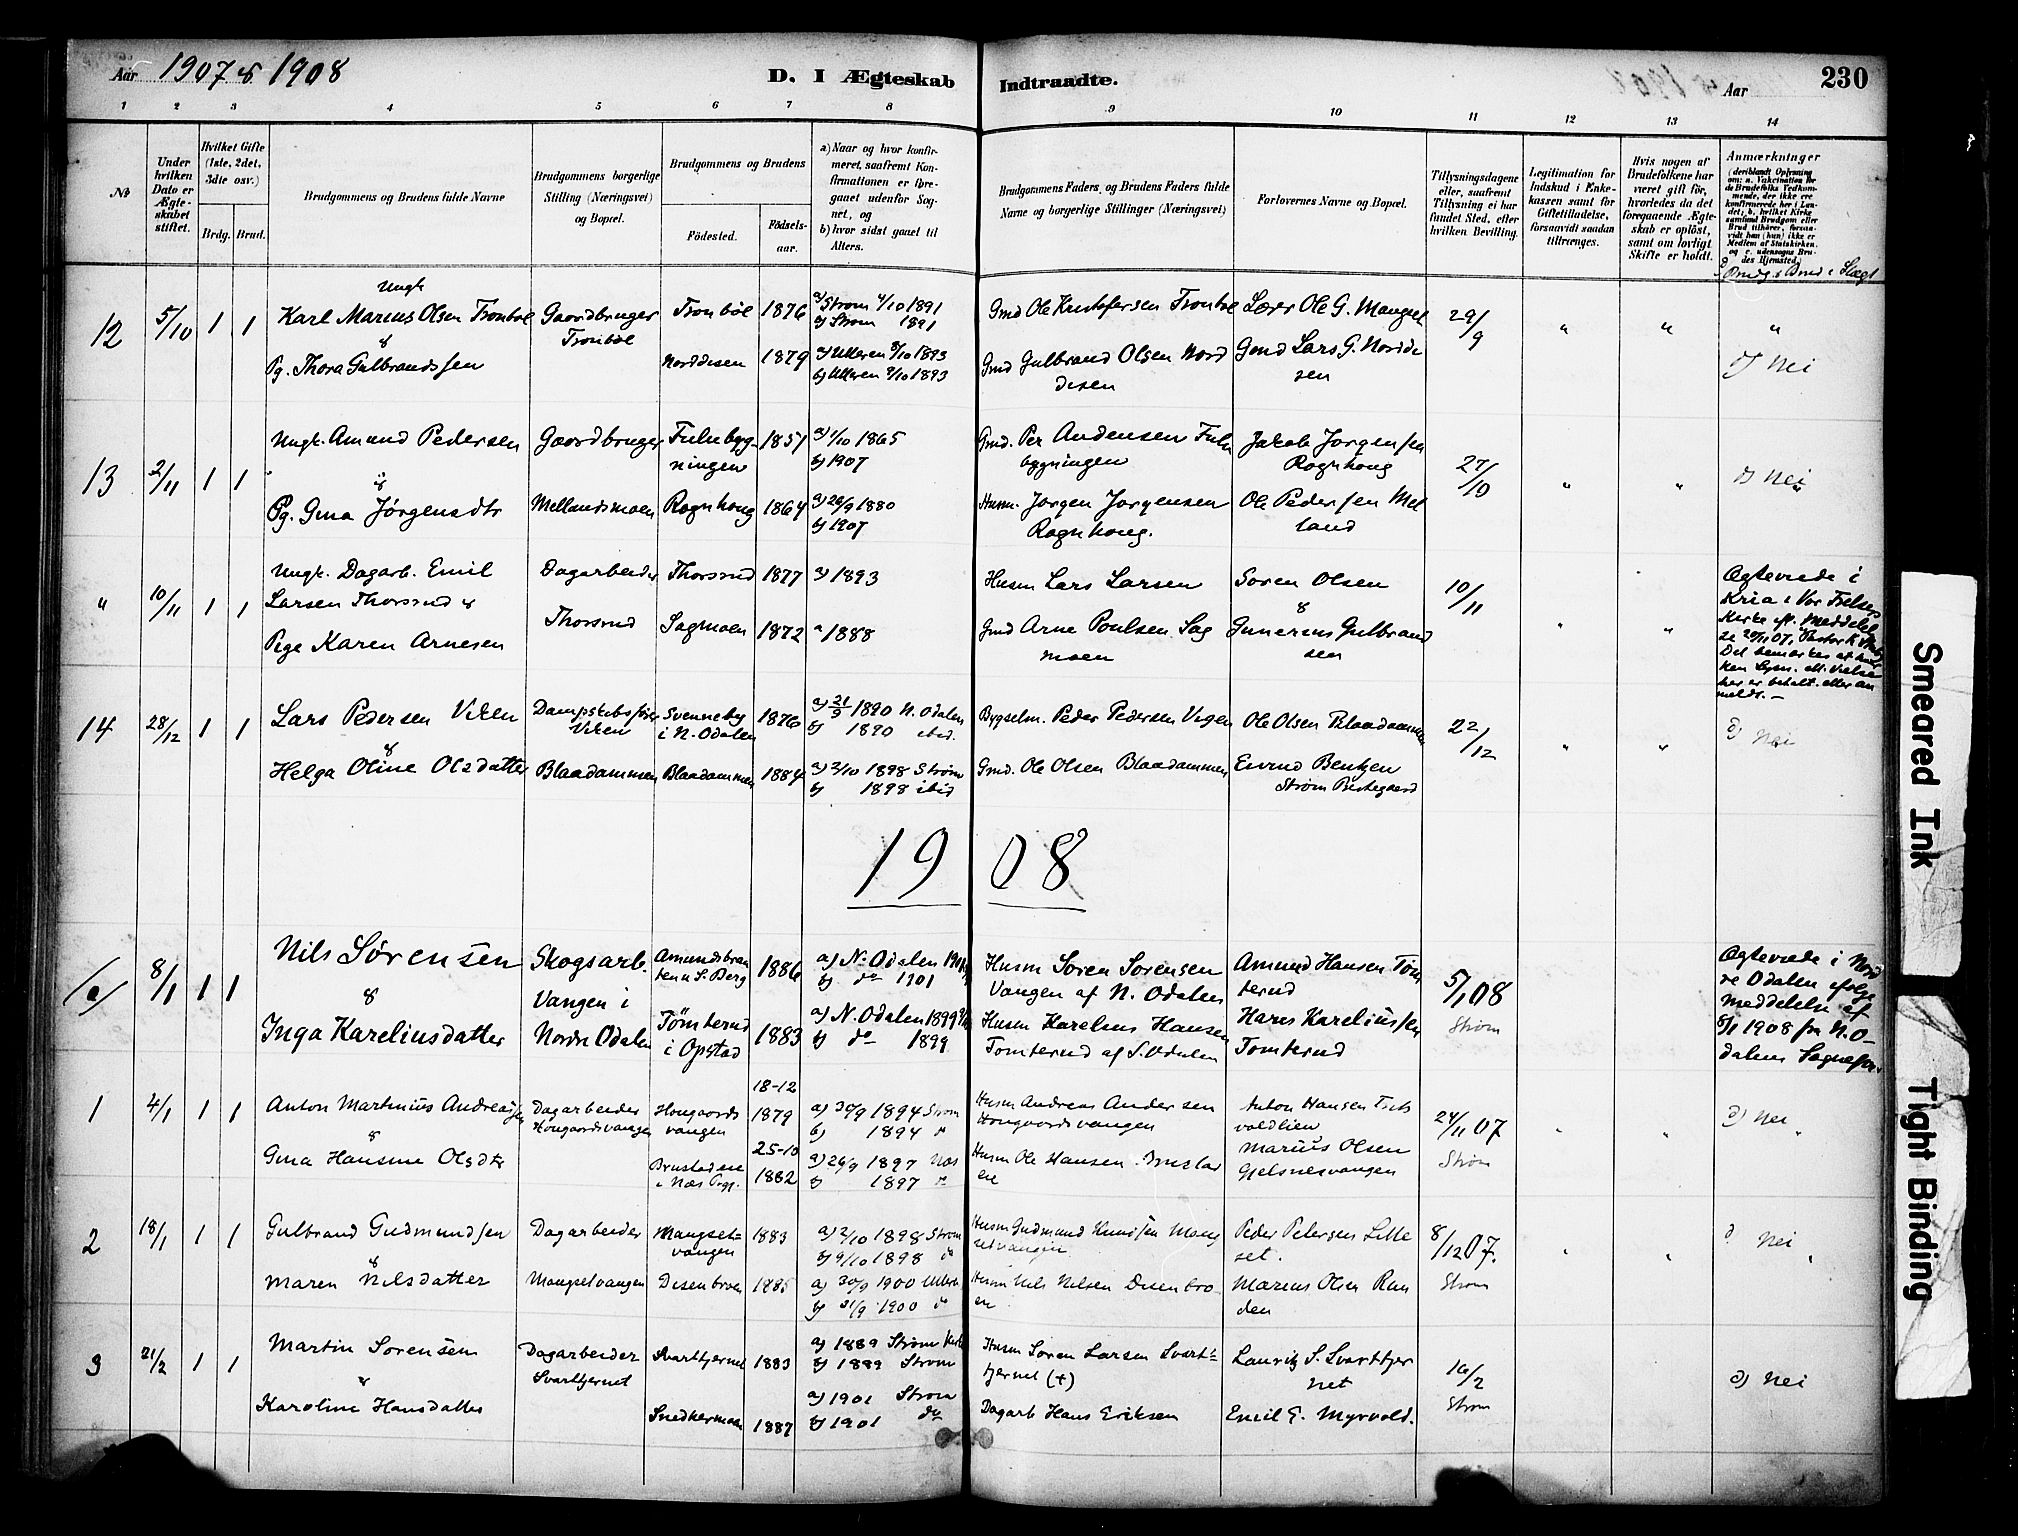 Aar 1907 & 1908
D. I Ægteskab Indtraadte.
Aar
230
1 2 3 4 5 6 7 8 9 10 11 12 13 14
No
Under hvilken Dato er Ægteskabet stiftet.
Hvilket Gifte (1ste, 2det, 3die osv.)
Brdg. Brud.
Brudgommens og Brudens fulde Navne
Brudgommens borgerlige Stilling (Næringsvei) og Bopæl.
Brudgommens og Brudens
Fødested. Fødselsaar.
a) Naar og hvor konfirmeret, saafremt Konfirmationen er foregaaet udenfor Sognet, og
b) hvor sidst gaaet til Alters.
Brudgommens Faders, og Brudens Faders fulde Navne og borgerlige Stillinger (Næringsvei)
Forlovernes Navne og Bopæl.
Tillysningsdagene eller, saafremt Tillysning ei har fundet Sted, efter hvilken Bevilling.
Legitimation for Indskud i Enkekassen samt for Giftetilladelse, forsaavidt saadan tiltrænges.
Hvis nogen af Brudefolkene har været gift før, hvorledes da det foregaaende Ægteskab er opløst, samt om lovligt Skifte er holdt.
Anmærkninger
(deriblandt Oplysning om: a. Vakcination for de Brudefolks Vedkommende, der ikke ere konfirmerede her i Landet; b. hvilket Kirkesamfund Brudgom eller Brud tilhører, forsaavidt han (hun) ikke er Medlem af Statskirken, og c. udensogns Brudes Hjemsted.)
d Brudg. & Brud i Slægt
12 5/10 1 1
Ungk
Karl Marius Olsen Tronbøl
&
Pg. Thora Gulbrandssen
Gaardbruger
Tronbøl
Tronbøl 1876
Norddisen 1879
a) Strøm 4/10 1891
b) Strøm 1891
a) Ulleren 8/10 1893
b) Ulleren 8/10 1893
Gmd Ole Kristofersen Tronbøl
Gmd Gulbrand Olsen Nord
disen
Lærer Ole G. Mangset
Gmd Lars G. Nordde
sen
29/9 " " "
d) Nei
13 2/11 1 1
Ungk. Amund Pedersen
&
Pg. Gina Jørgensdtr
Gaardbruger
Mellandsmoen
Fulubyg-
ningen 1851
Rognhoug 1864
a) 1/10 1865
b) 1907
a) 26/9 1880
b) 1907
Gmd. Per Andensen Fulu
bygningen
Husm. Jørgen Jørgensen
Rognhoug.
Jakob Jørgensen
Rognhoug
Ole Pedersen Mel
land
27/10 " "
d) Nei
" 10/11 1 1
Ungk. Dagarb. Emil
Larsen Thorsrud &
Pige Karen Arnesen
Dagarbeider
Thorsrud
Thorsrud 1877
Sagmoen 1872
a) 1893
a 1888
Husm Lars Larsen
Gmd Arne Poulsen Sag
moen
Søren Olsen
&
Gunerius Gulbrand
sen
10/11 " "
Ægteviede i
Kria i Vor Frelsers
Kirke efl. Meddelel
se 20/11 07,
Det bemærkes at
her er betalt eller an
meldt. —
14 28/12 1 1
Lars Pedersen Viken
&
Helga Oline Olsdatter
Dampskibsfører
Viken
Blaadammen
Svenneby
i N. Odalen 1876
Blaadammen 1884
a) 21/9 1890 N. Odalen
b) 1890 ibid.
a) 2/10 1898 Strøm
b) 1898 ibid
Bygselm. Peder Pedersen Vigen
Gmd. Ole Olsen Blaadammen
Ole Olsen Blaadammen
Eivind Bentzen
Strøm Prestegaard
22/12 " "
d) Nei
1908
(a) 8/1 1 1
Nils Sørensen
&
Inga Kareliusdatter
Skogsarb.
Vangen i
Nordre Odalen
Amundsbraa
ten u S. Berg 1886
Tømterud
i Opstad 1883
a) N. Odalen 1901
b) do 1901
a) N. Odalen 1899
b) do 1899
Husm Søren Sørensen
Vangen af N. Odalen
Husm Karelius Hansen
Tomterud af S. Odalen
Amund Hansen Tøm
terud
Hans Kareliussen
Tomterud
5/1 08
Strøm
Ægteviede i Nord
re Odalen ifølge
Meddelelse af
8/1 1908 fra N. O-
dalens Sognepr.
1 4/1 1 1
Anton Martinius Andreassen
&
Gina Hansine Olsdtr
Dagarbeider
Hougaardsvangen
Hougaards
vangen 18-12 1879
Brustadeie
i Næs Prgj. 25-10 1882
a) 30/9 1894 Strøm
b) 1894 do
a) 26/9 1897 Næs
b) 1897 do
Husm Andreas Andersen
Hougaardsvangen
Husm Ole Hansen Brustad
eie
Anton Hansen
voldlien
Marius Olsen
Gjelsnesvangen
24/11 07
Strøm
d) Nei
2 18/1 1 1
Gulbrand Gudmundsen
&
Maren Nilsdatter
Dagarbeider
Mangsetvangen
Mangset-
vangen 1883
Disenbroen 1885
a) 2/10 1898 Strøm
b) 9/10 1898 do
a) 30/9 1900 Ullern
b) 31/9 1900 do
Husm Gudmund Knudsen Mang
setvangen
Husm Nils Nilsen Disenbro-
en
Peder Petersen Lille
set.
Marius Olsen Ran
den
8/12 07.
Strøm
d Nei
3 21/2 1 1
Martin Sørensen
&
Karoline Hansdatter
Dagarbeider
Svarttjernet
Svarttjernet 1883
Snedkermoen 1887
a) 1889 Strøm Kirke
b) 1889 Strøm
a) 1901 Strøm
b) 1901 do
Husm Søren Larsen Svart-
tjernet (+)
Dagarb Hans Eriksen
Lauritz S. Svarttjer
net
Emil E. Myrvold.
16/2
Strøm
d) Nei
Smeared Ink
Tight Binding